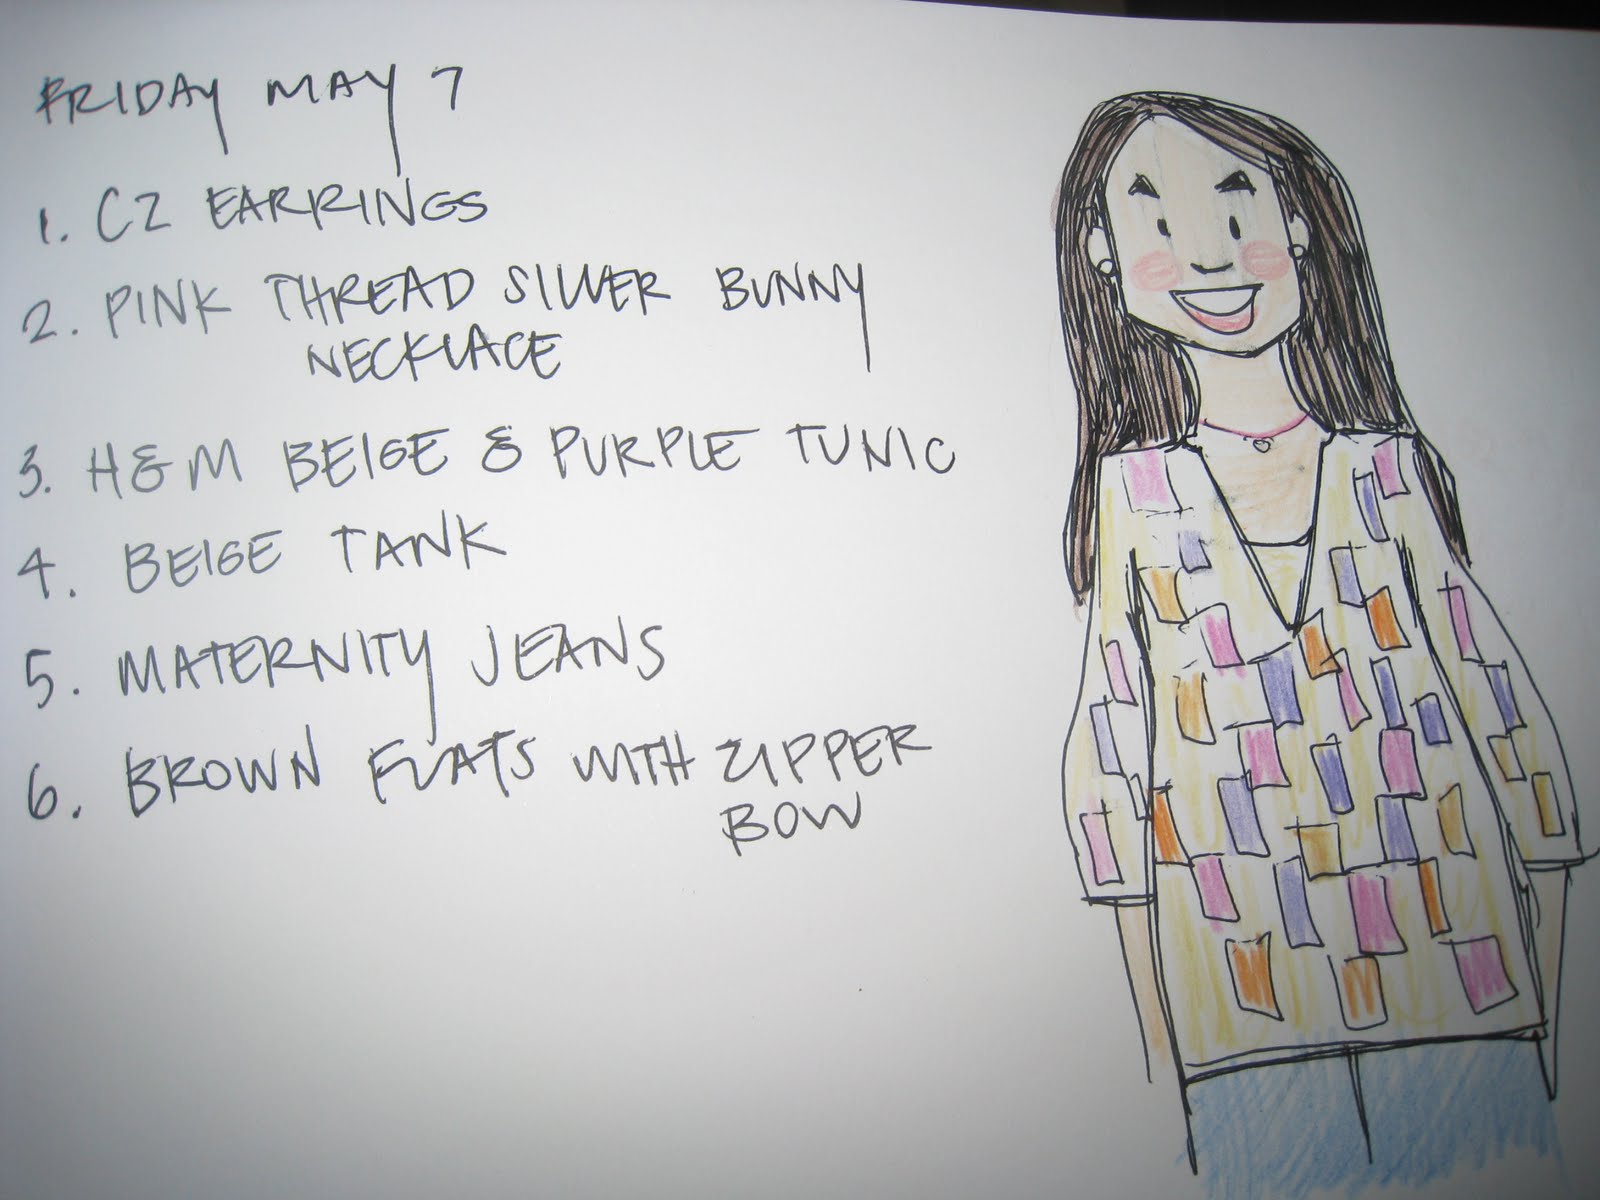 FRIDAY MAY 7
1. CZ EARRINGS
2. PINK THREAD SILVER BUNNY
NECKLACE
3. H&M BEIGE & PURPLE TUNIC
4. BEIGE TANK
5. MATERNITY JEANS
6. BROWN FLATS WITH ZIPPER
BOW